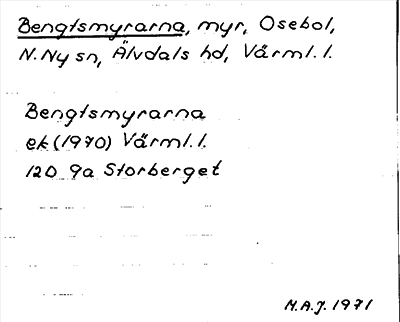 Bengtsmyrarna, myr, Osebol,
N.Ny sn, Älvdals hd, Värml.l.
Bengtsmyrarna
ek (1970) Värml.l.
12D 9a Storberget
M.A.J. 1971